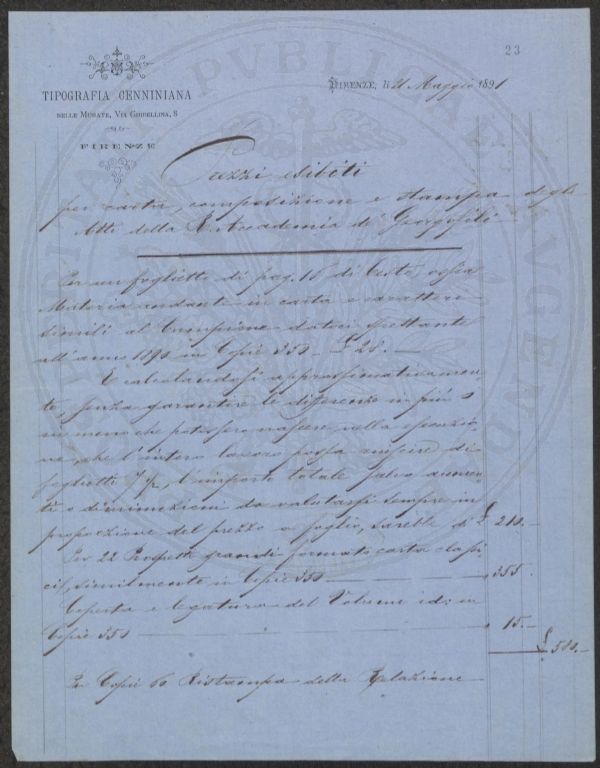 23
TIPOGRAFIA CENNINIANA
NELLE MURATE, VIA GHIBELLINA, 8
FIRENZE
FIRENZE, li 21 Maggio 1891
Prezzi esibiti
per carta composizione e stampa degli
Atti della R. Accademia di Georgofili
Per un foglietto di pag. 16 di testo ossia
Materia andante in carta e caratteri
simili al Campione datoci spettante
all'anno 1890 in Copie 350 £ 28.—
E calcolandosi approssimativamen-
te, senza garantire le differenze in più o
in meno che potessero nascere nella esecuzio-
ne, che l'intero lavoro possa riuscire di
foglietti 7 ½, l'importo totale salvo aumen-
ti e diminuzioni da valutarsi sempre in
proporzione del prezzo a foglio, sarebbe di £ 210.—
Per 22 Prospetti grandi formato carta
similmente in Copie 350 — " 355.
Coperta e legatura del Volume id: in
Copie 350 — " 15.—
£ 580.—
Per Copie 60 Ristampa della Relazione
PVBLICAE